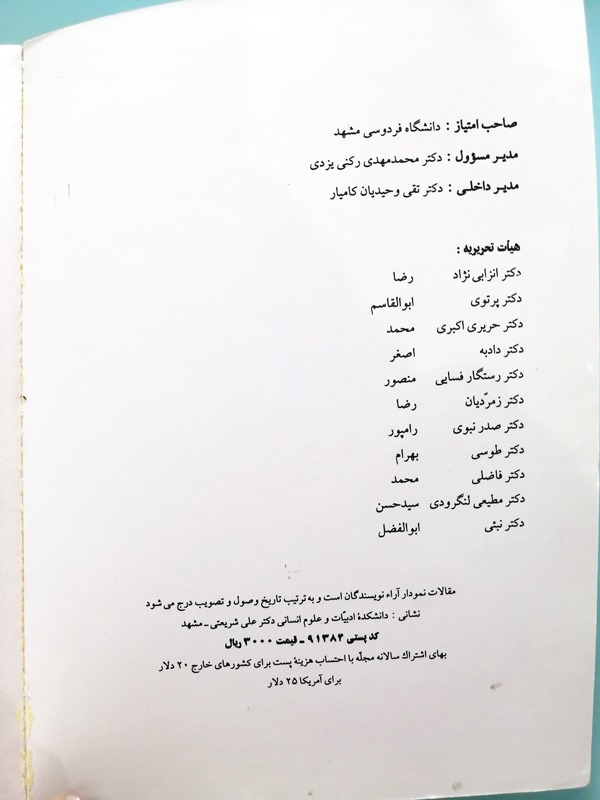 صاحب امتیاز : دانشگاه فردوسی مشهد
مدیر مسؤول : دکتر محمدمهدی رکنی یزدی
مدیر داخلی : دکتر تقی وحیدیان کامیار
هیأت تحریریه :
دکتر انزابی نژاد رضا
دکتر پرتوی ابوالقاسم
دکتر حریری اکبری محمد
دکتر دادبه اصغر
دکتر رستگار فسایی منصور
دکتر زمرّدیان رضا
دکتر صدر نبوی رامپور
دکتر طوسی بهرام
دکتر فاضلی محمد
دکتر مطیعی لنگرودی سیدحسن
دکتر نبئی ابوالفضل
مقالات نمودار آراء نویسندگان است و به ترتیب تاریخ وصول و تصویب درج می شود
نشانی : دانشکدهٔ ادبیّات و علوم انسانی دکتر علی شریعتی ـ مشهد
کد پستی ۹۱۳۸۴ ـ قیمت ۳۰۰۰ ریال
بهای اشتراك سالانه مجلّه با احتساب هزینهٔ پست برای کشورهای خارج ۲۰ دلار
برای آمریکا ۲۵ دلار